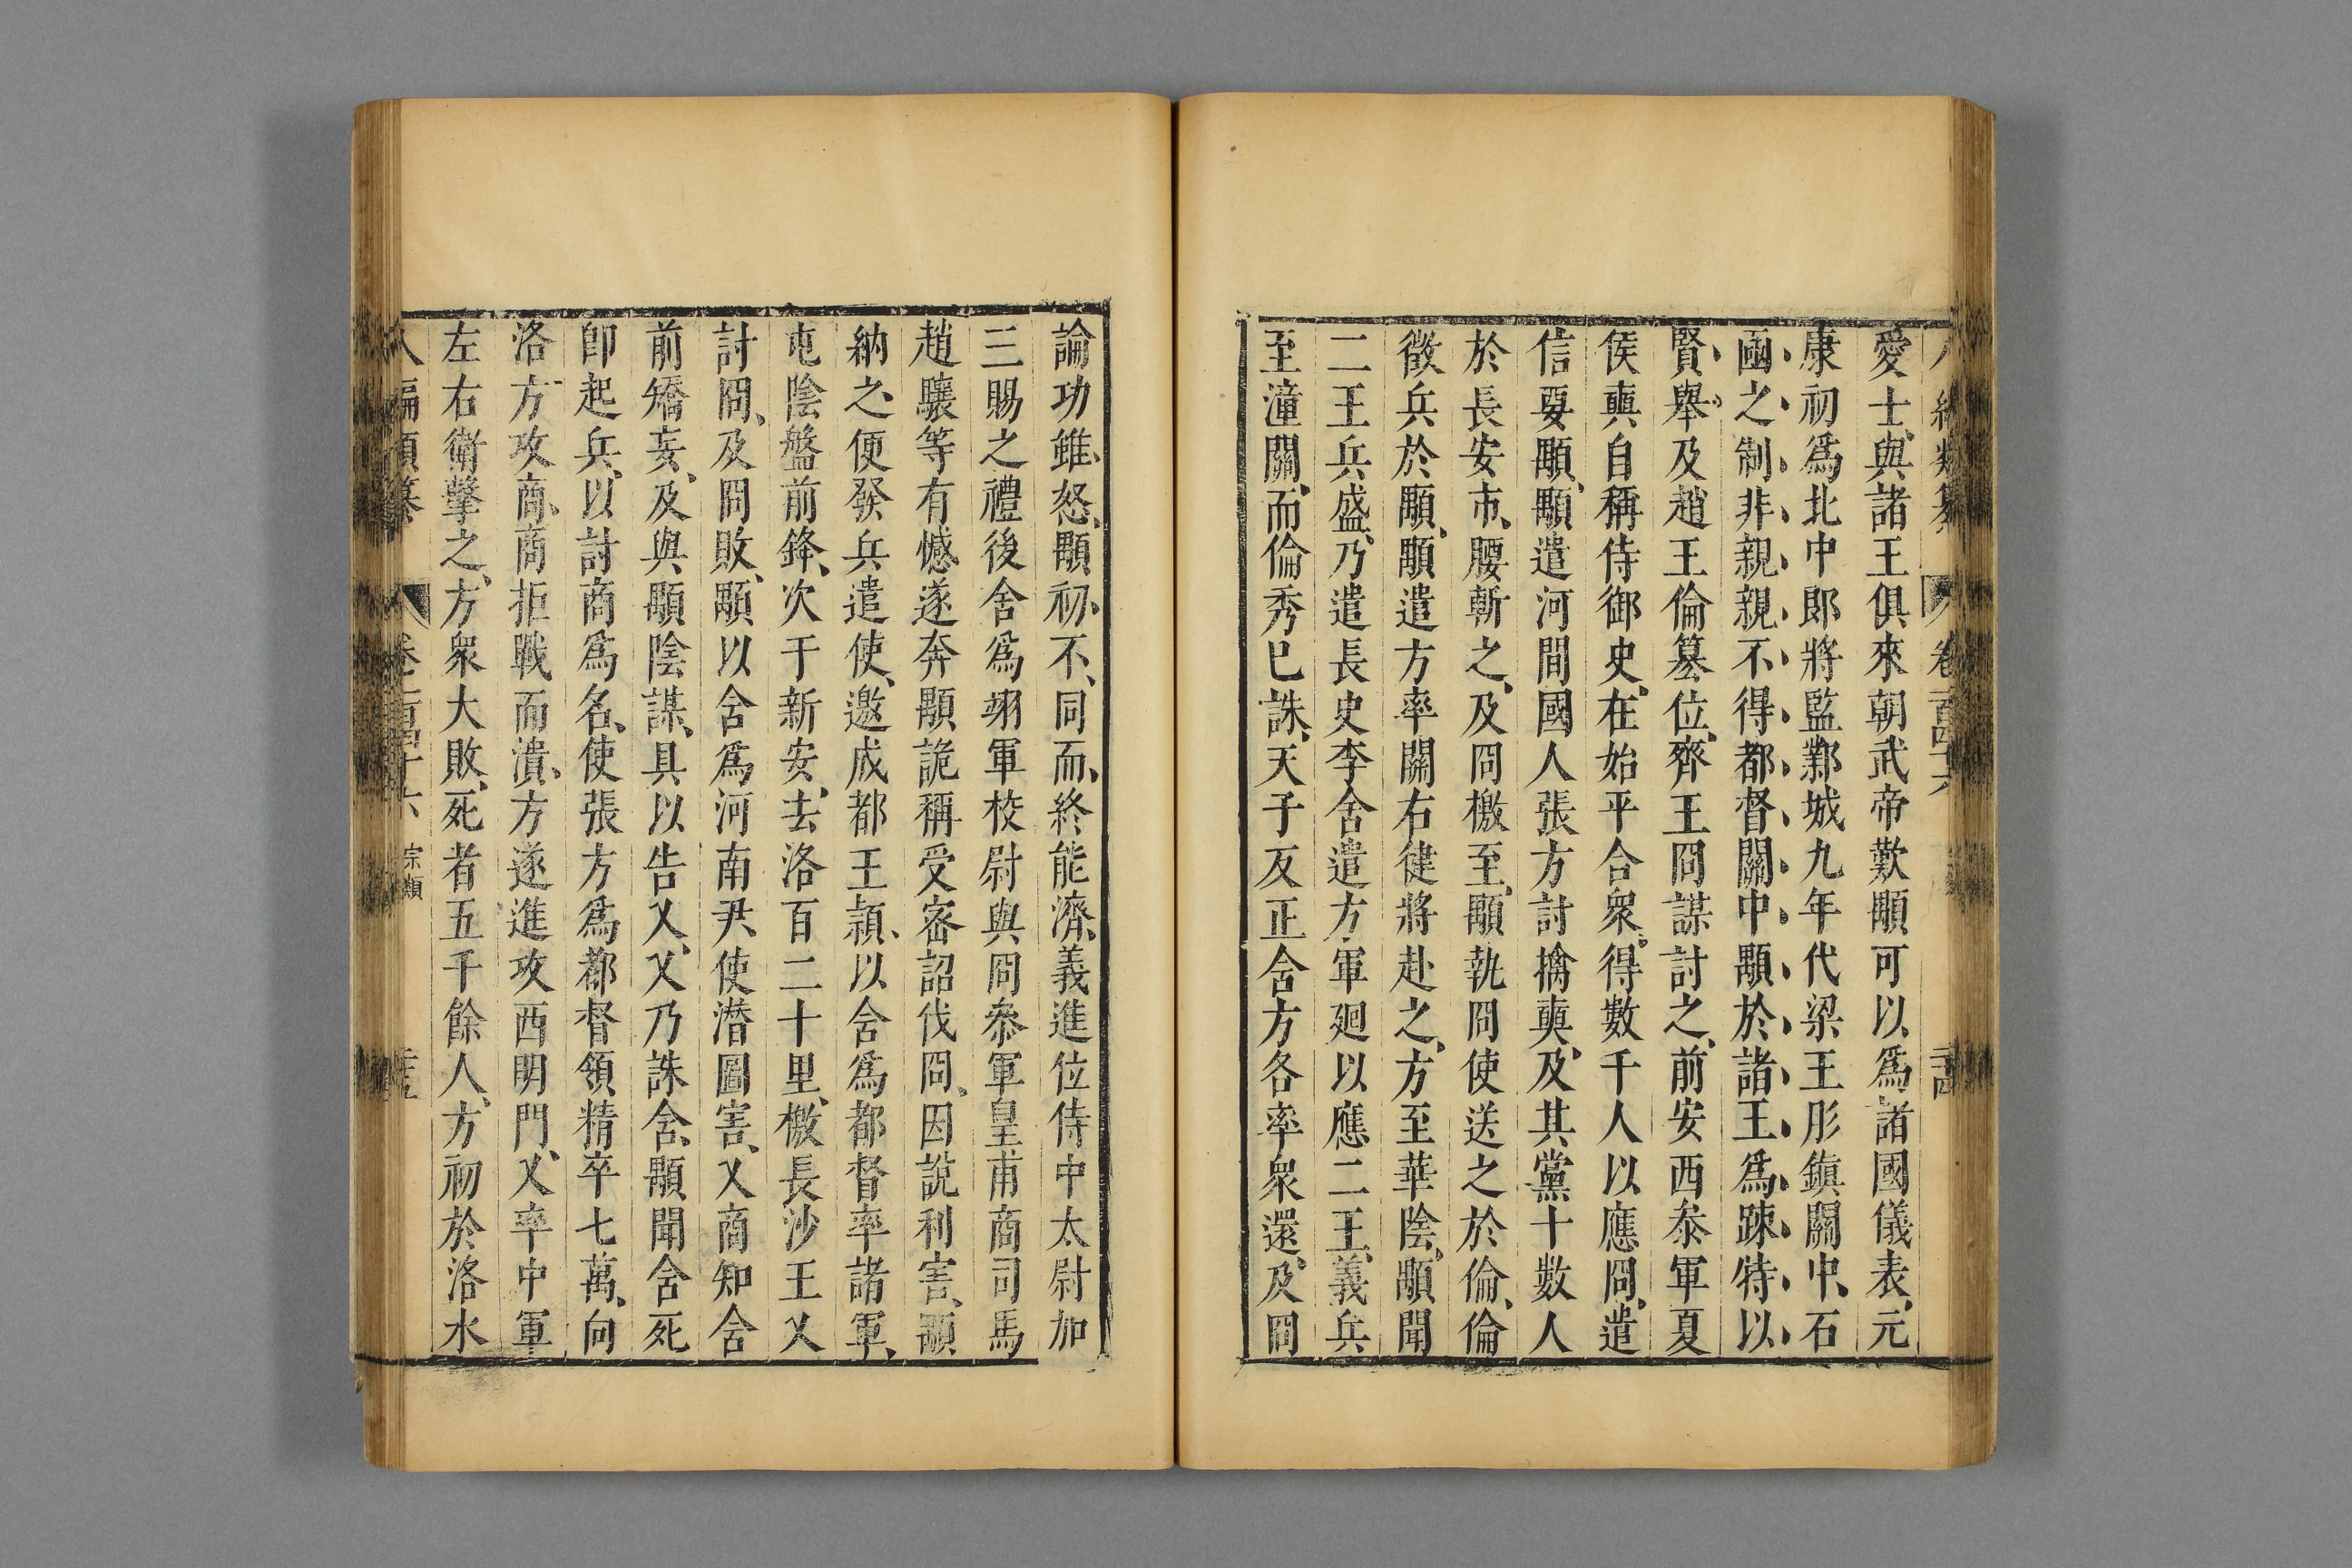 愛士、與諸王俱來朝武帝歎顒可以爲諸國儀表、元
康初爲北中郎將監鄴城九年代梁王肜鎮關中、石
凾之制非親親不得都督關中顒於諸王爲踈特以
賢舉及趙王倫簒位、齊王冏謀討之、前安西叅軍夏
侯奭自稱侍御史、在始平合衆、得數千人以應冏、遣
信要顒、顒遣河間國人張方討擒奭、及其黨十數人
於長安市、腰斬之、及冏檄至、顒執冏使送之於倫、倫
徵兵於顒、顒遣方率關右健將赴之、方至華陰、顒聞
二王兵盛、乃遣長史李含遣方軍廻以應二王、義兵
至潼關、而倫秀已誅、天子反正含方各率衆還、及冏
論功雖怒、顒初不同而終能濟義進位侍中太尉加
三賜之禮後含爲翊軍校尉與冏叅軍皇甫商司馬
趙驤等有憾遂奔顒詭稱受密詔伐冏、因說利害、顒
納之便發兵遣使、邀成都王穎、以含爲都督率諸軍、
屯陰盤前鋒、次于新安、去洛百二十里、檄長沙王乂
討冏、及冏敗、顒以含爲河南尹使潛圖害、乂商知含
前矯妄、及與顒陰謀、具以告乂、乂乃誅含、顒聞含死
卽起兵、以討商爲名、使張方爲都督領精卒七萬、向
洛方攻商、商拒戰而潰、方遂進攻西明門、乂率中軍
左右衛擊之、方衆大敗、死者五千餘人、方初於洛水
八編類纂 卷二百四十六 宗類